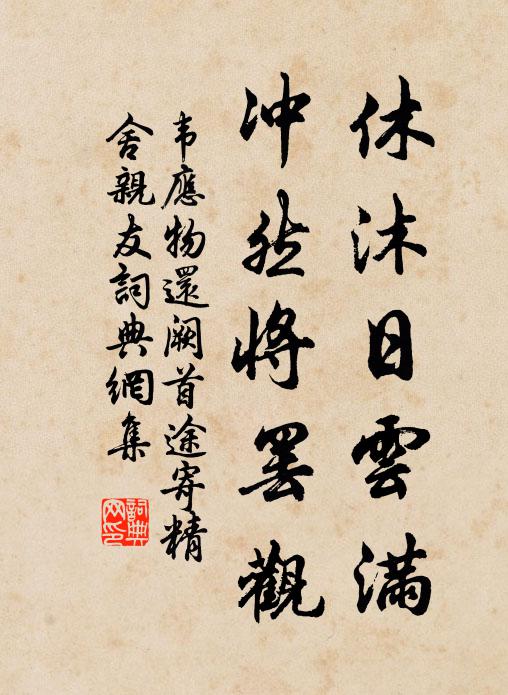 休沐日雲滿
冲然將罷觀
韦應物還阙首途寄精
舍親友詞典網集
詞典網印